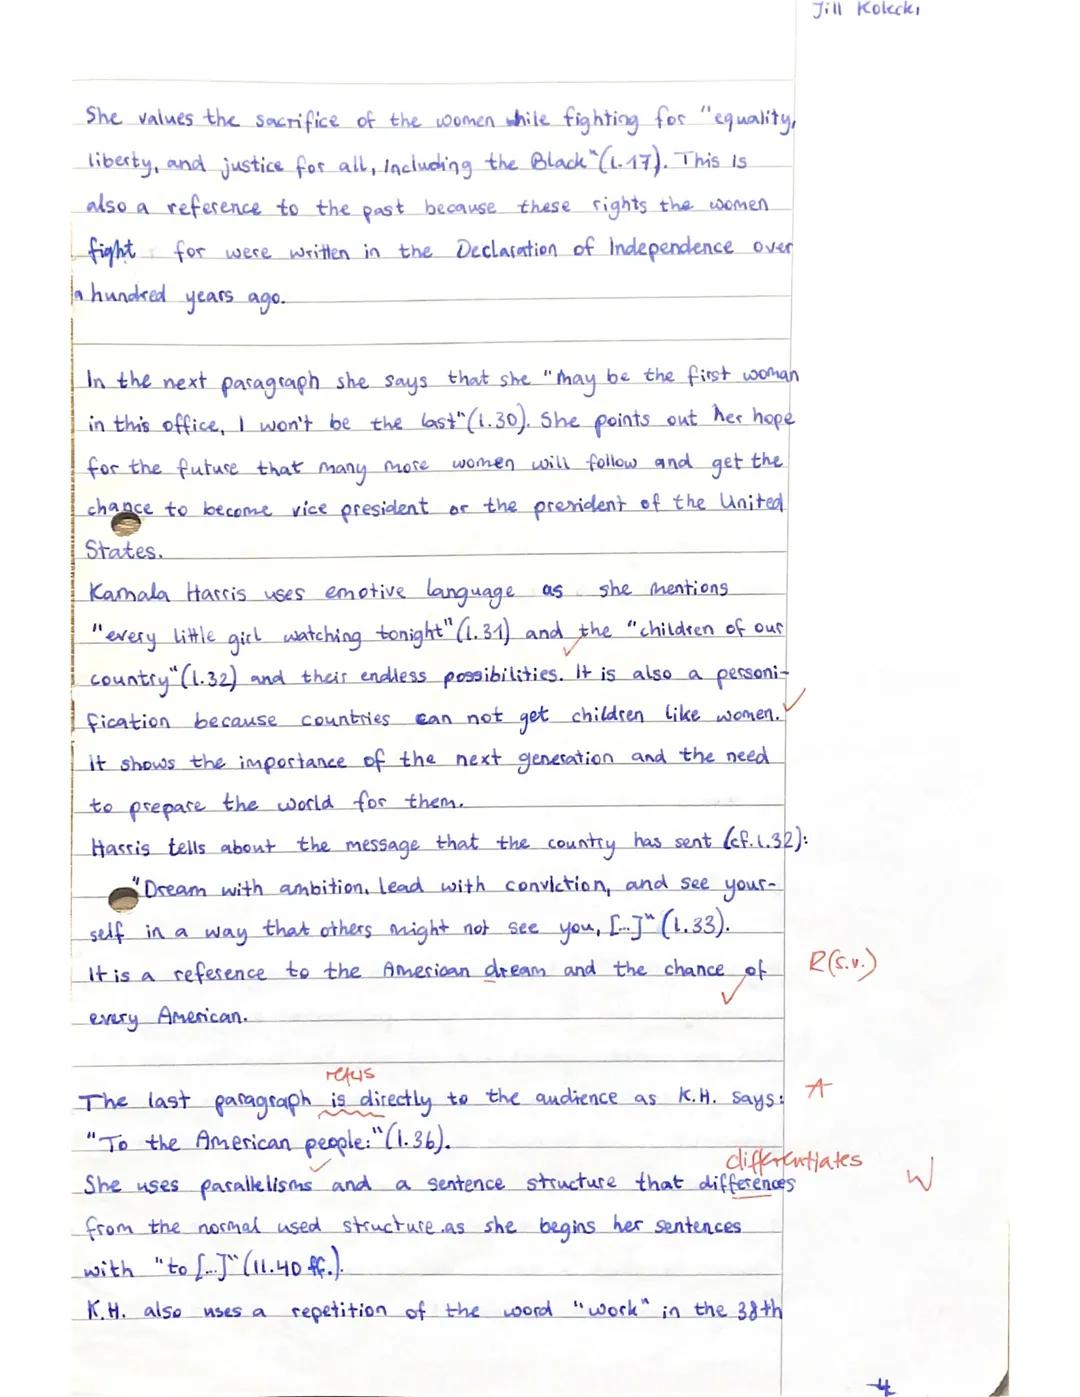 Jill Kolecki
She values the sacrifice of the women while fighting for "equality,
liberty, and justice for all, Including the Black"(l.17). This is
also a reference to the past because these rights the women
fight for were written in the Declaration of Independence over
a hundred years ago.
In the next paragraph she says that she "may be the first woman
in this office, I won't be the last"(l.30). She points out her hope
for the future that many more women will follow and get the
chance to become vice president or the president of the United
States.
Kamala Harris uses emotive language as she mentions
"every little girl watching tonight"(l.31) and the "children of our
country"(l.32) and their endless possibilities. It is also a personi-
fication because countries can not get children like women.
it shows the importance of the next generation and the need
to prepare the world for them.
Harris tells about the message that the country has sent (cf.l.32):
"Dream with ambition, lead with conviction, and see your-
self in a way that others might not see you, [...]" (l.33).
It is a reference to the American dream and the chance of R(s.v.)
every American.
refers
The last paragraph is directly to the audience as K.H. says: A
"To the American people:"(l.36).
differentiates
She uses parallelisms and a sentence structure that differences W
from the normal used structure as she begins her sentences
with "to [...]"(ll.40 ff.).
K.H. also uses a repetition of the word "work" in the 38th
4